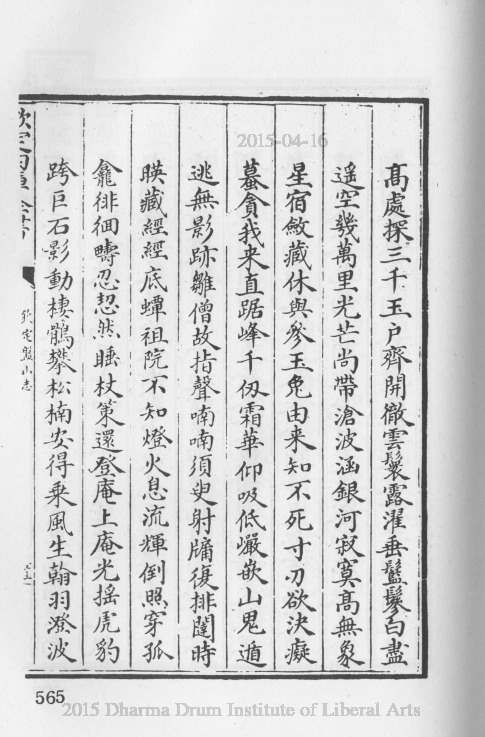 2015-04-16
高處探三千玉户齊開徹雲鬟露濯垂鬖鬖白盡
遥空幾萬里光芒尚帶滄波涵銀河寂寞髙無象
星宿斂藏休與參玉兔由来知不死寸刃欲決癡
蟇貪我来直踞峰千仭霜華仰吸低巖嵌山鬼遁
逃無影跡雛僧故指聲喃喃須臾射牖復排闥時
暎藏經經底蟫祖院不知燈火息流輝倒照穿孤
龕徘徊疇忍恝然睡杖策還登庵上庵光揺虎豹
跨巨石影動棲鶻攀松楠安得乗風生翰羽潑波
欽定四庫全書
欽定盤山志
565
2015 Dharma Drum Institute of Liberal Arts